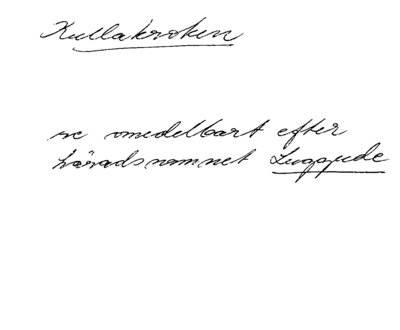 Kullakroken
se omedelbart efter
häradsnamnet Luggude